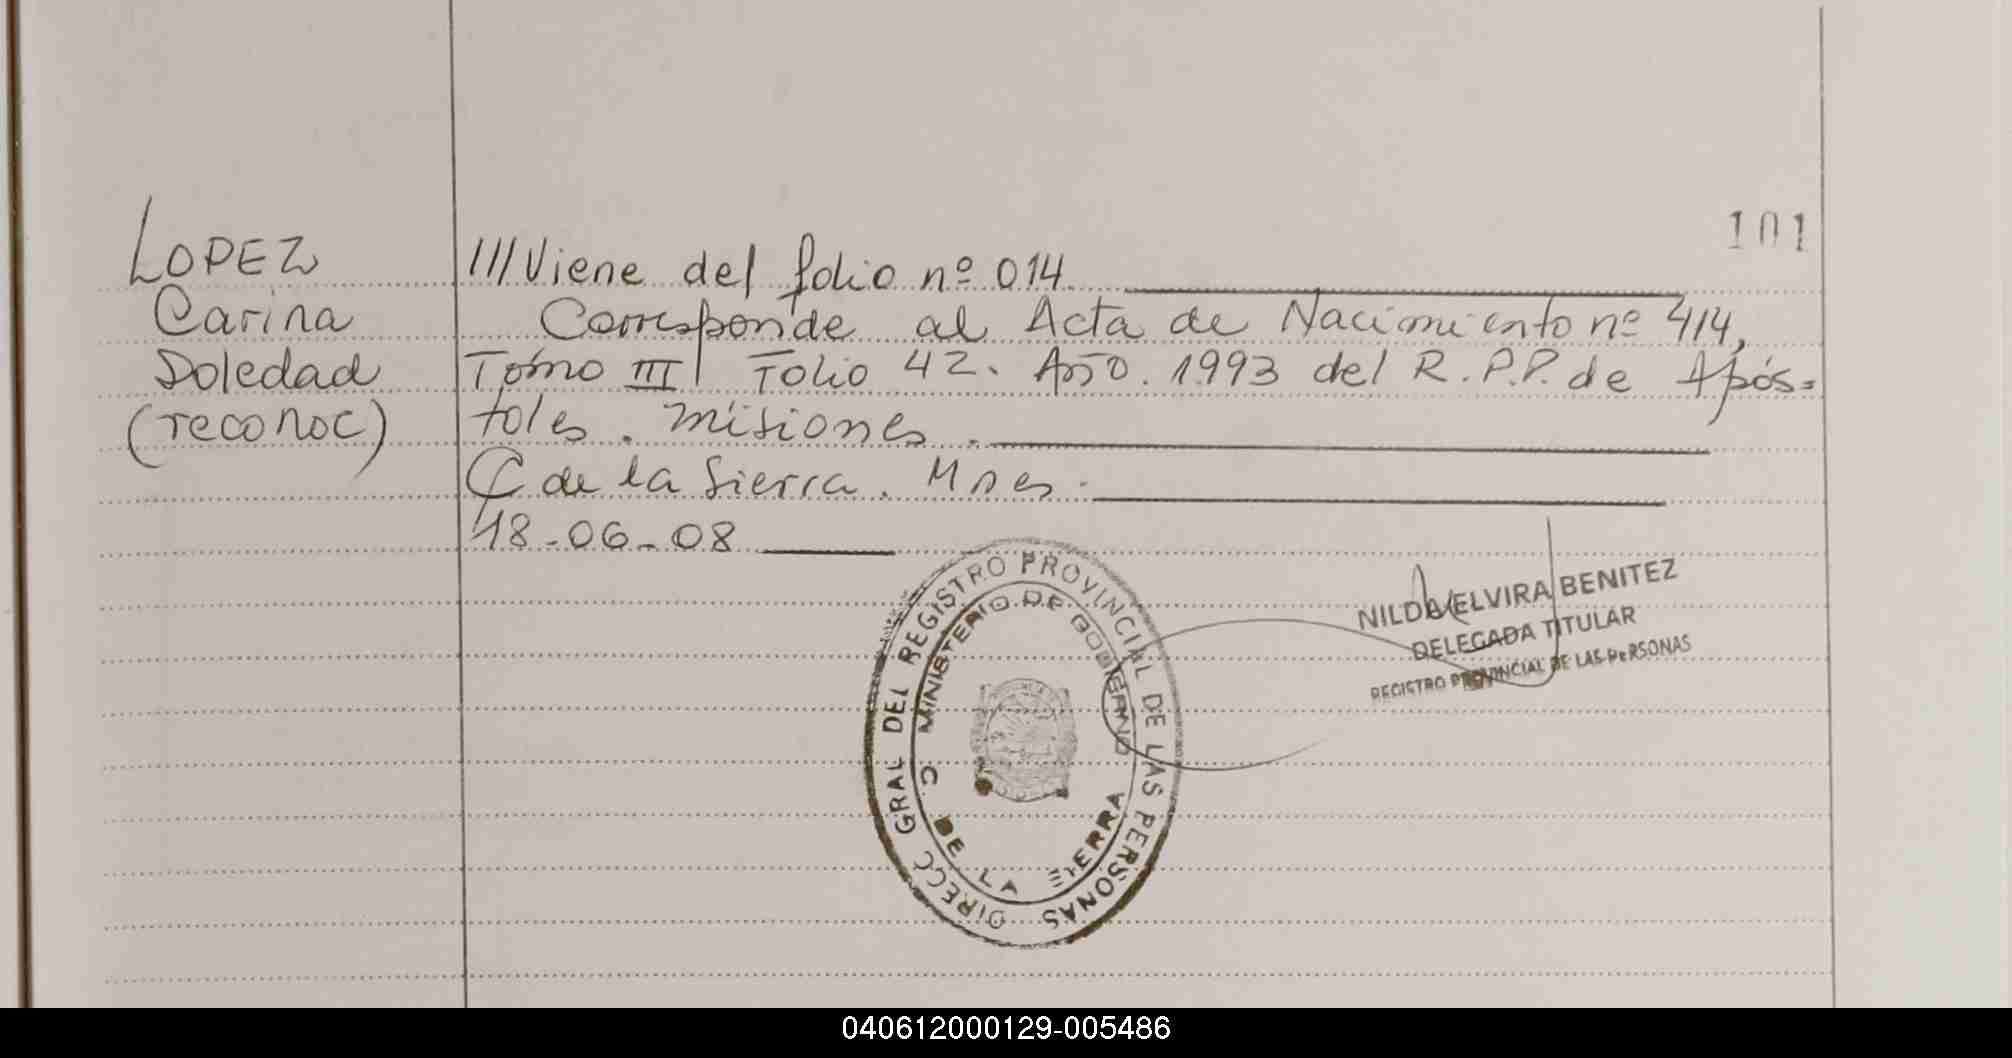 101
LOPEZ
Carina
Soledad
(reconoc)
///Viene del folio nº 014
Corresponde al Acta de Nacimiento nº 414,
Tomo III Folio 42. Año. 1993 del R.P.P. de Após=
toles. Misiones.
C de la Sierra. Mnes.
18-06-08
DIRECC GRAL DEL REGISTRO PROVINCIAL DE LAS PERSONAS
MINISTERIO DE GOBIERNO
C. DE LA SIERRA
NILDA ELVIRA BENITEZ
DELEGADA TITULAR
REGISTRO PROVINCIAL DE LAS PERSONAS
040612000129-005486